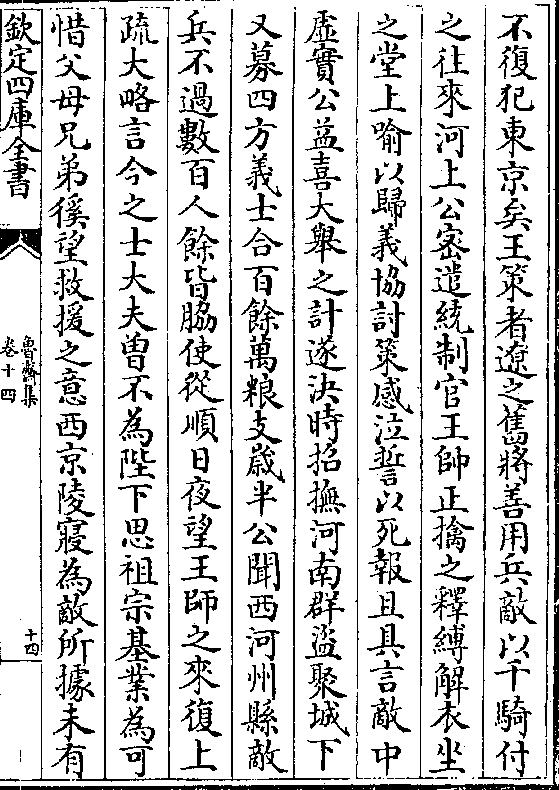 不復犯東京矣王策者遼之舊將善用兵敵以千騎付
之往來河上公密遣統制官王師正擒之釋縛解衣坐
之堂上喻以歸義協討策感泣誓以死報且具言敵中
虛實公益喜大舉之計遂決時招撫河南群盜聚城下
又募四方義士合百餘萬粮支歲半公聞西河州縣敵
兵不過數百人餘皆脇使從順日夜望王師之來復上
疏大略言今之士大夫曾不為陛下思祖宗基業為可
惜父母兄弟徯望救援之意西京陵寢為敵所據未有
欽定四庫全書
魯齋集
卷十四
十四